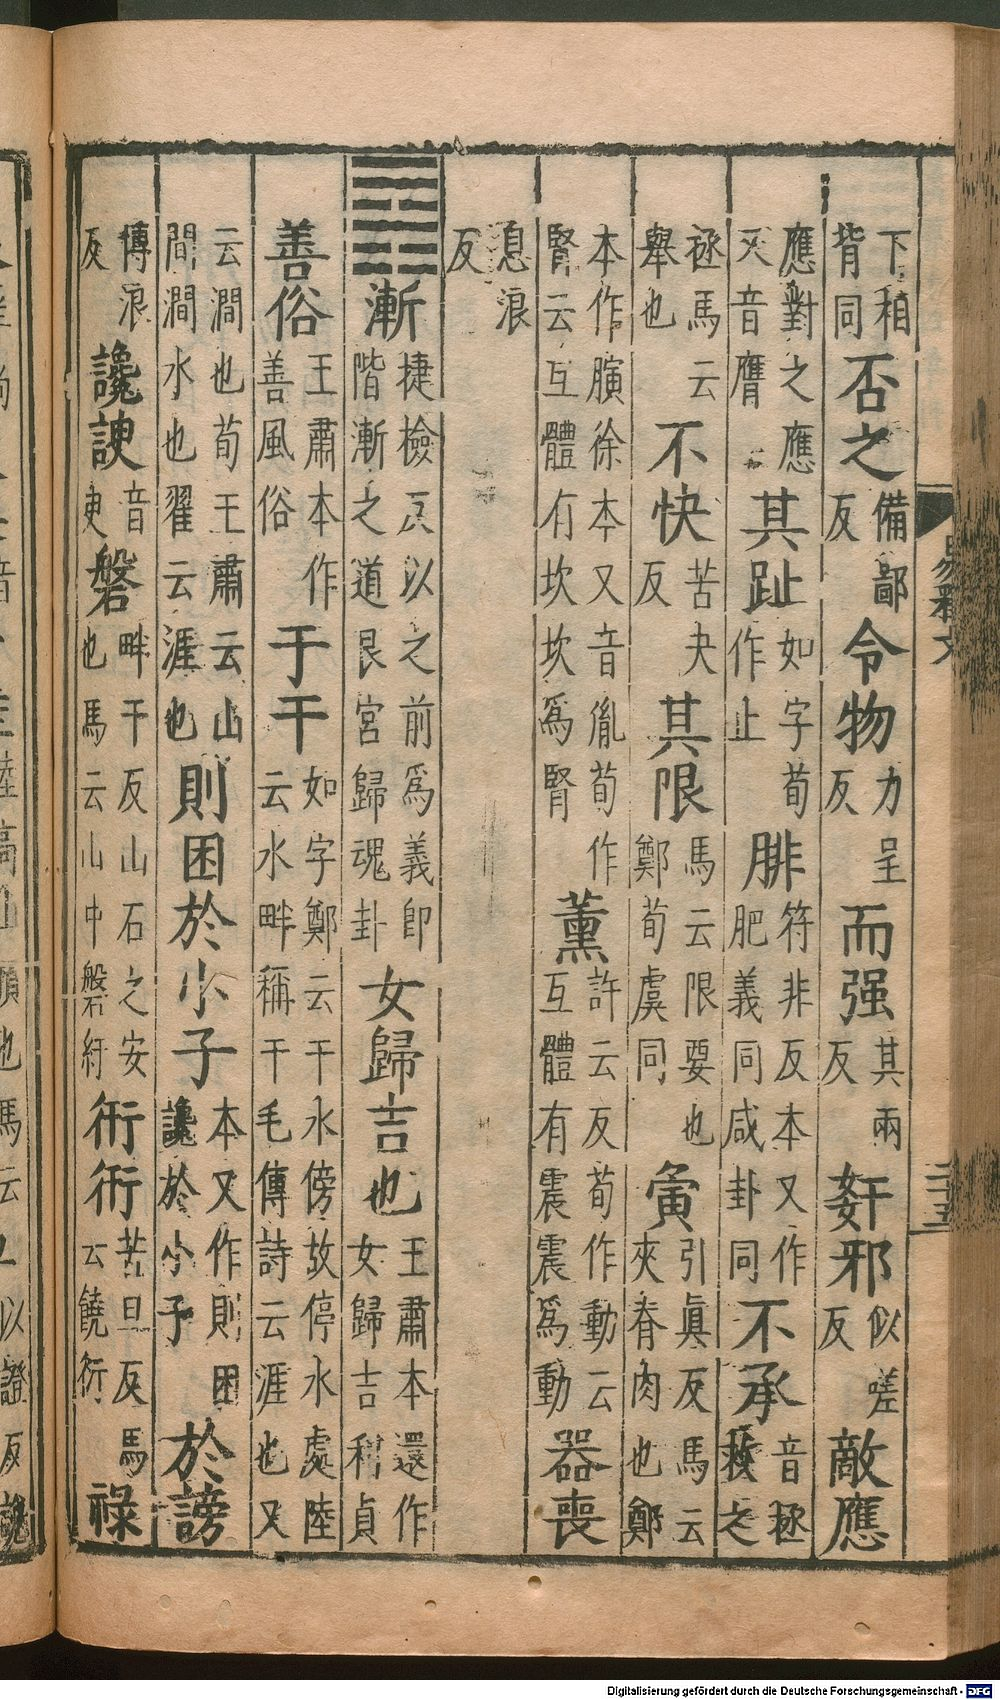 下相背同否之備鄙反令物力呈反而强其兩反姧邪似嗟反敵應
應對之應又音膺其趾如字荀作止腓符非反本又作肥義同咸卦同不承音拯救之
拯馬云舉也不快苦夬反其限馬云限要也鄭荀虞同夤引眞反馬云夾脊肉也鄭
本作䐜徐本又音胤荀作腎云互體有坎坎爲腎薰許云反荀作動云互體有震震爲動器喪
息浪反
䷴漸捷檢反以之前爲義即階漸之道艮宮歸魂卦女歸吉也王肅本還作女歸吉利貞
善俗王肅本作善風俗于干如字鄭云干水傍故停水處陸云水畔稱干毛傳詩云涯也又
云澗也荀王肅云山間澗水也翟云涯也則困於小子本又作則困讒於小子於謗
博浪反讒諛音臾磐畔干反山石之安也馬云山中磐紆衎衎苦旦反馬云饒衎祿
易釋文
二十五
Digitalisierung gefördert durch die Deutsche Forschungsgemeinschaft - DFG